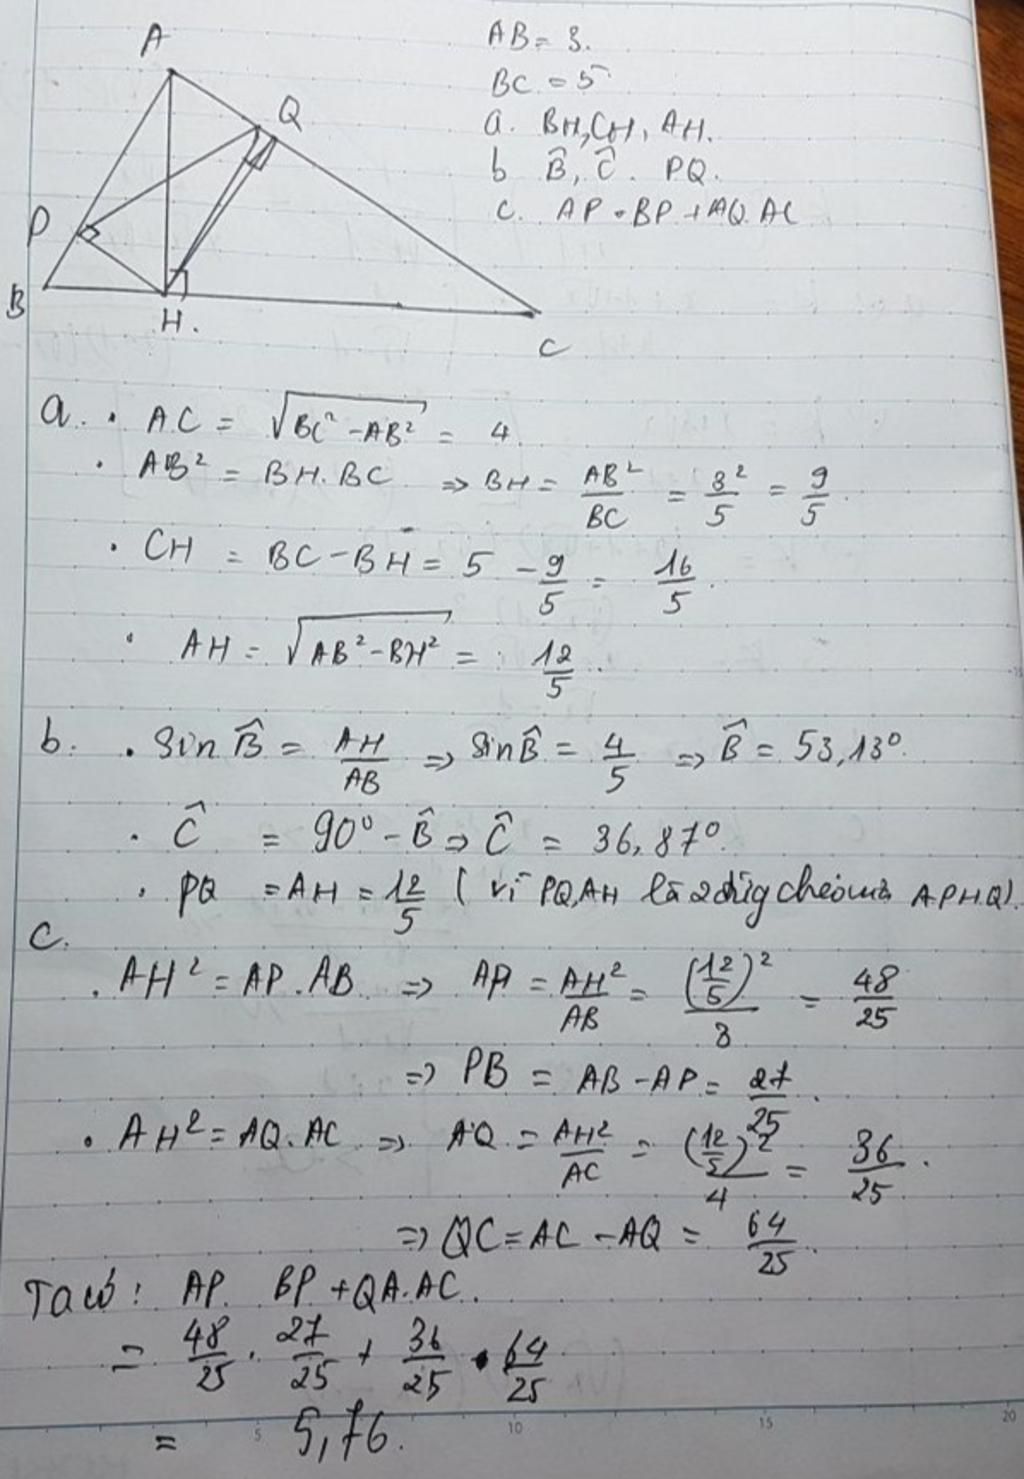 A
Q
P
B
H.
C
AB = 3.
BC = 5
a. BH, CH, AH.
b B̂, Ĉ. PQ.
c. AP.BP + AQ.AC
a. • AC = √(BC² - AB²) = 4
• AB² = BH.BC => BH = AB²/BC = 3²/5 = 9/5.
• CH = BC - BH = 5 - 9/5 = 16/5.
• AH = √(AB² - BH²) = 12/5.
b. • Sin B̂ = AH/AB => sin B̂ = 4/5 => B̂ = 53,13°.
• Ĉ = 90° - B̂ => Ĉ = 36,87°.
• PQ = AH = 12/5 (vì PQ, AH là 2 đường chéo của APHQ).
c.
• AH² = AP.AB => AP = AH²/AB = (12/5)²/3 = 48/25
=> PB = AB - AP = 27/25.
• AH² = AQ.AC => AQ = AH²/AC = (12/5)²/4 = 36/25.
=> QC = AC - AQ = 64/25.
Ta có: AP. BP + QA.AC.
= 48/25 . 27/25 + 36/25 . 64/25
= 5,76.
5 10 15 20